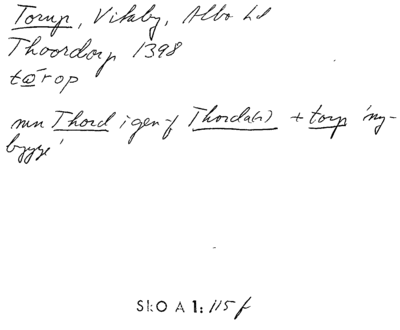 Torup, Vitaby, Albo hd
Thoordorp 1398
tɷ́rop
mn Thord i gen-f Thorda(r) + torp 'ny-
bygge'
SkO A 1: 115 f